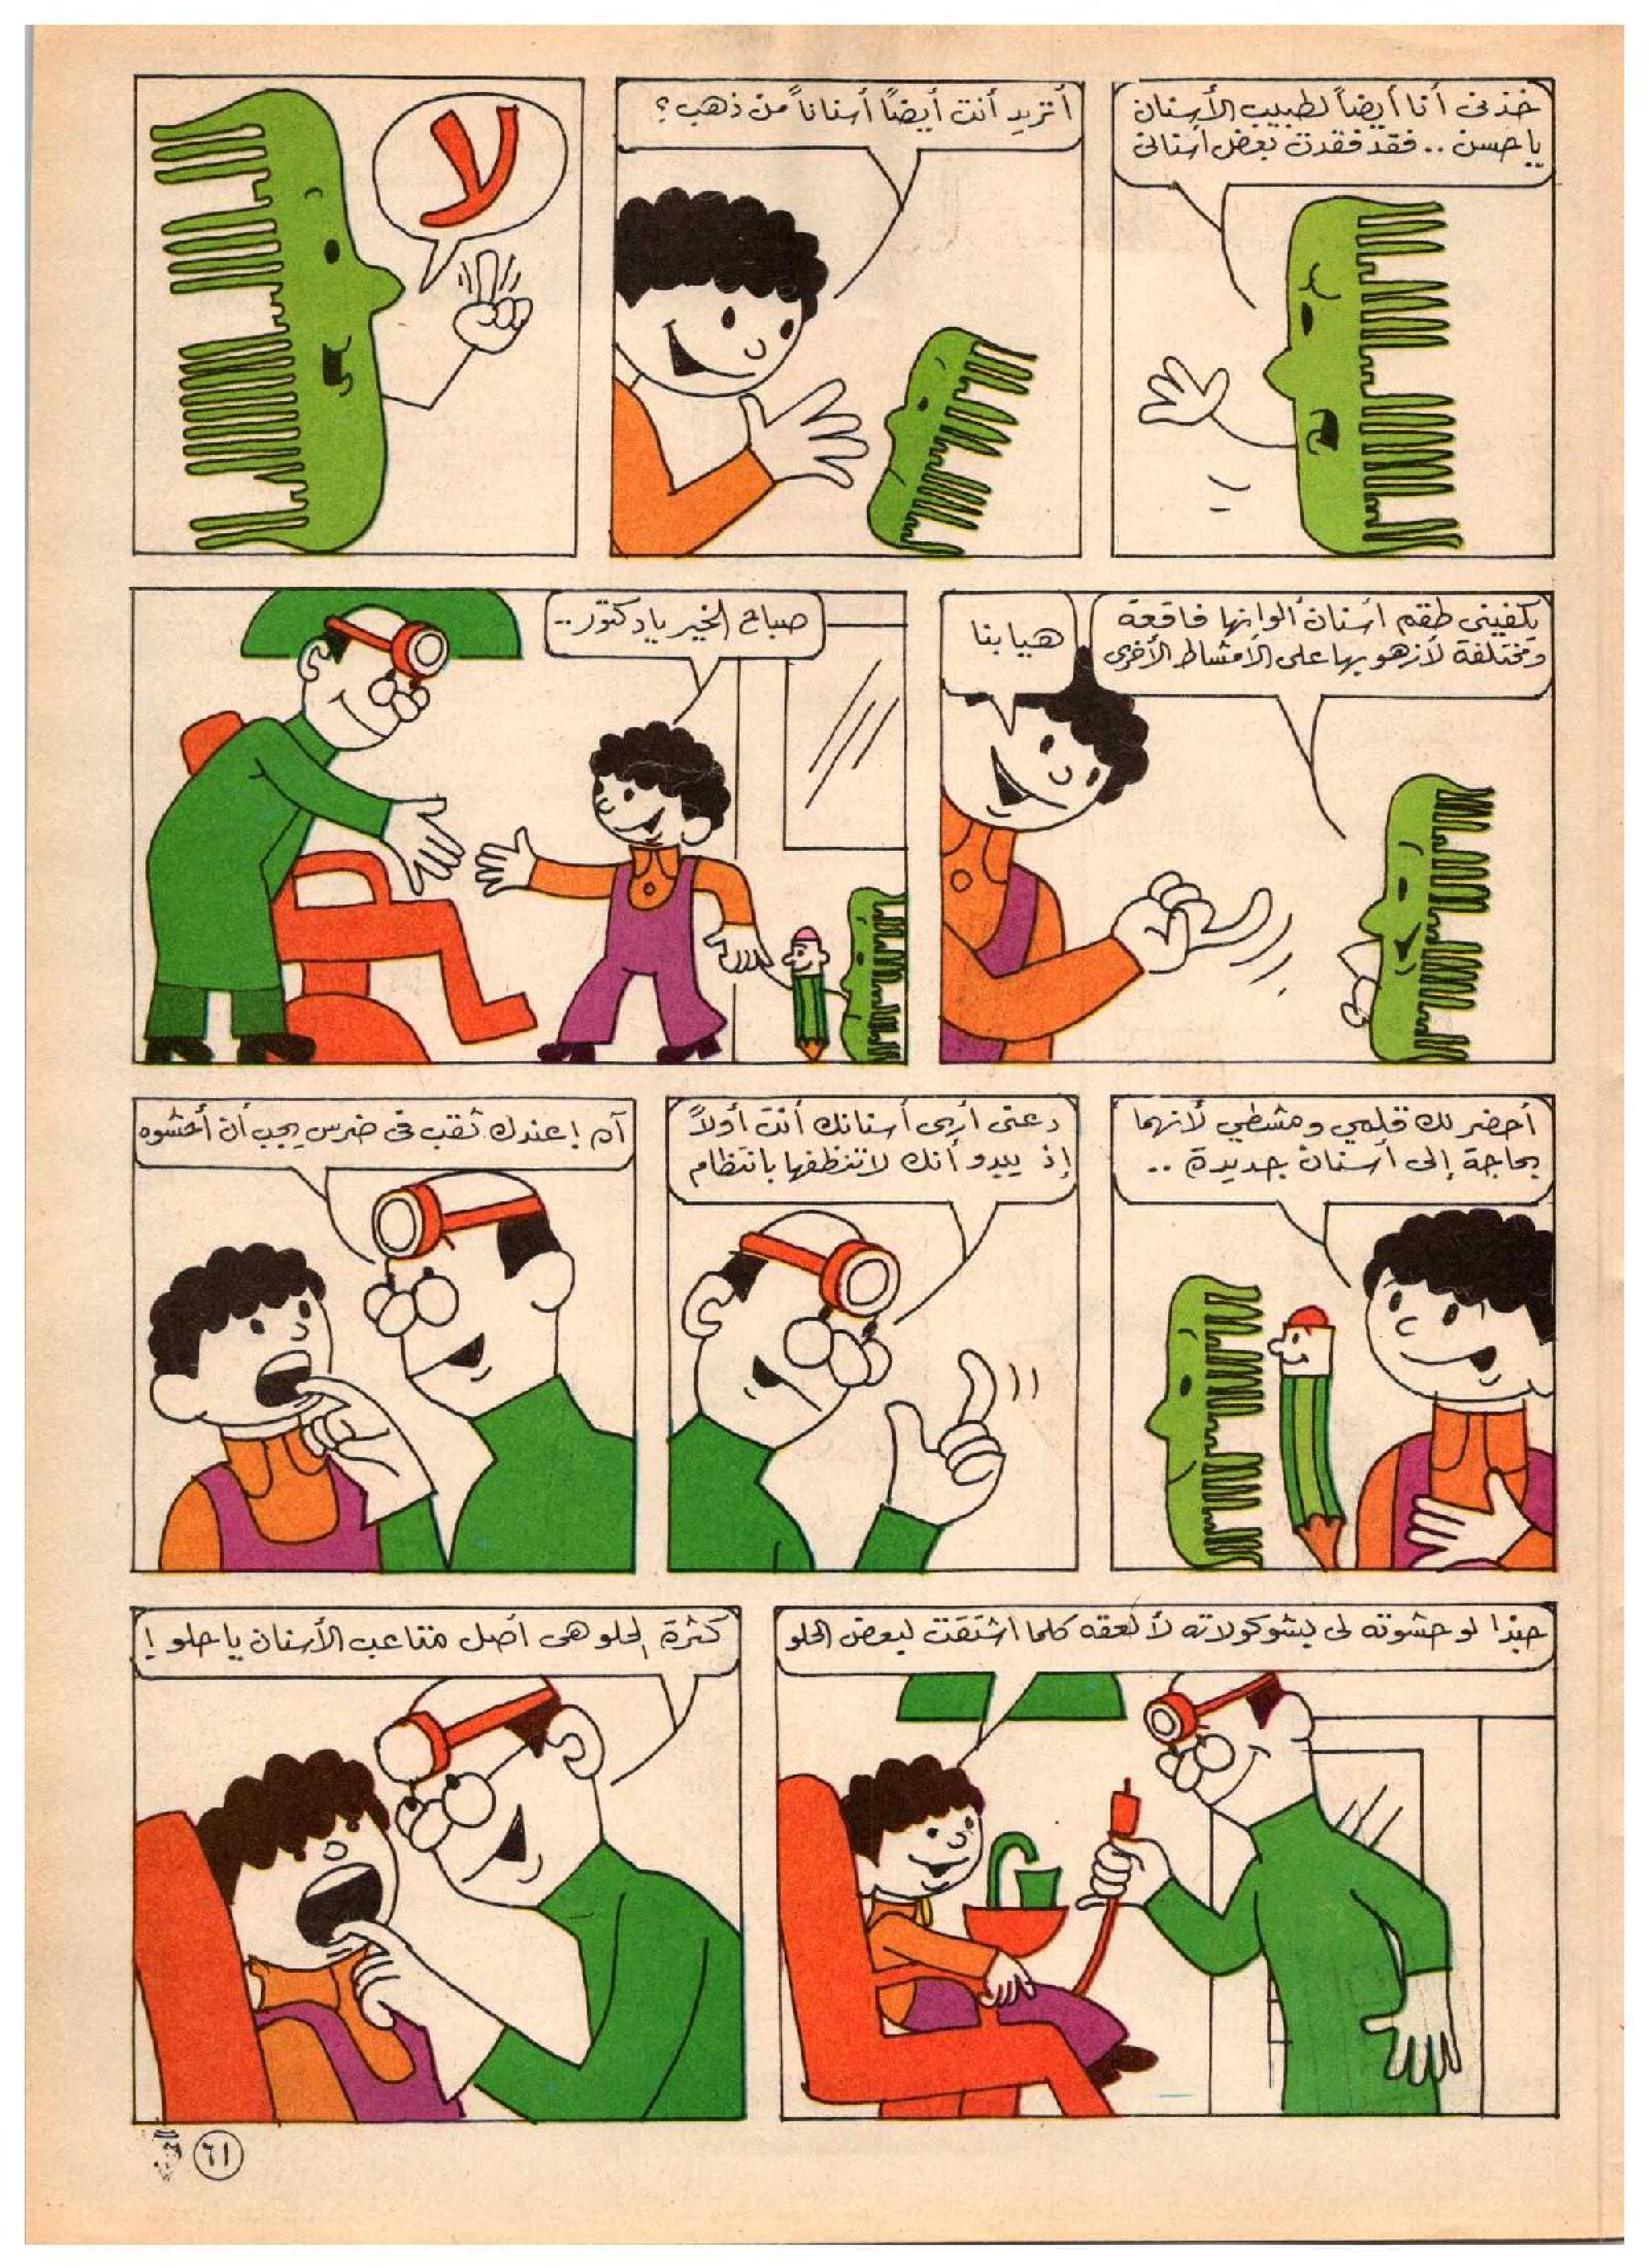 خذنى أنا أيضاً لطبيب الأسنان
يا حسن .. فقد فقدت بعض أسنانى
أتريد أنت أيضًا أسناناً من ذهب؟
لا
يكفينى طقم أسنان ألوانها فاقعة
ومختلفة لأزهو بها على الأمشاط الأخرى
هيا بنا
صباح الخير يا دكتور..
أحضر لك قلمي ومشطي لأنهما
بحاجة إلى أسنان جديدة ..
دعنى أرى أسنانك أنت أولاً
إذ يبدو أنك لا تنظفها بانتظام
آه ! عندك ثقب فى ضرس يجب أن أحشوه
حبذا لو حشوته لى بشوكولاته لألعقه كلما اشتقت لبعض الحلو
كثرة الحلو هى أصل متاعب الأسنان يا حلو !
٦١